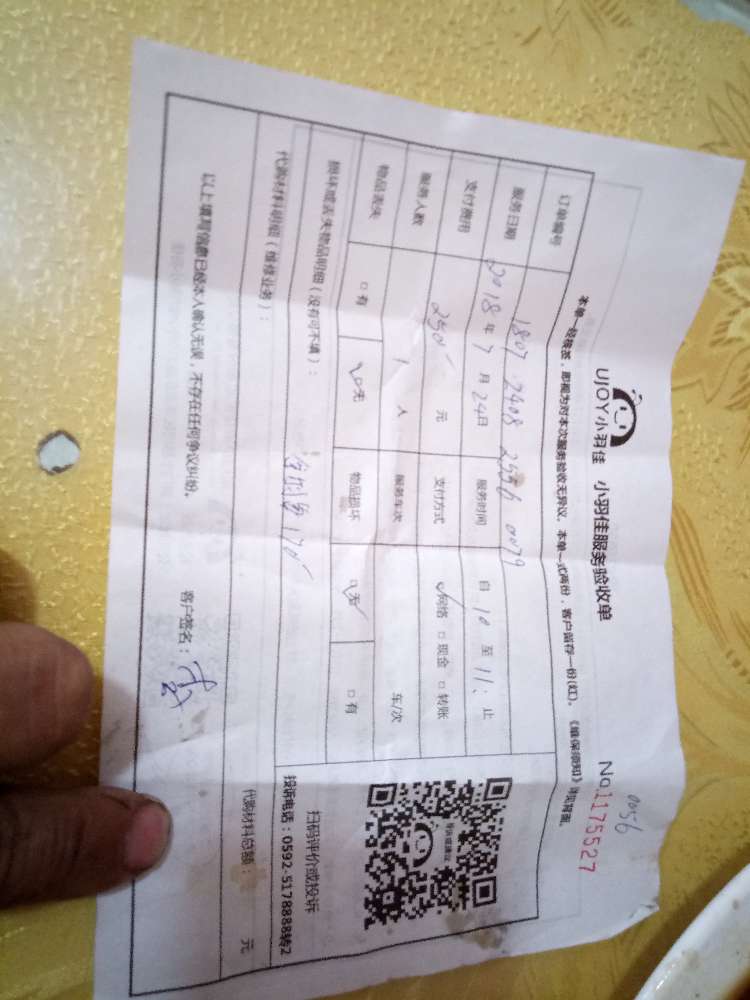 UJOY小羽佳 小羽佳服务验收单
0056
No.1175527
本单一经核签，即视为对本次服务验收无异议。本单一式两份，客户留存一份(红)。《维保须知》详见背面。
订单编号 1807 2408 2556 0079
服务日期 2018年7月24日 服务时间 自10至11:止
支付费用 250元 支付方式 网络 □现金 □转账
服务人数 1人 服务车次 车/次
物品丢失 □有 □无 物品损坏 □无 □有
损坏或丢失物品明细（没有可不填）：
代购材料明细（维修业务）：
代购材料总额： 元
扫码评价或投诉
投诉电话：0592-5178888转2
以上填写信息已经本人确认无误，不存在任何争议纠纷。
客户签名：